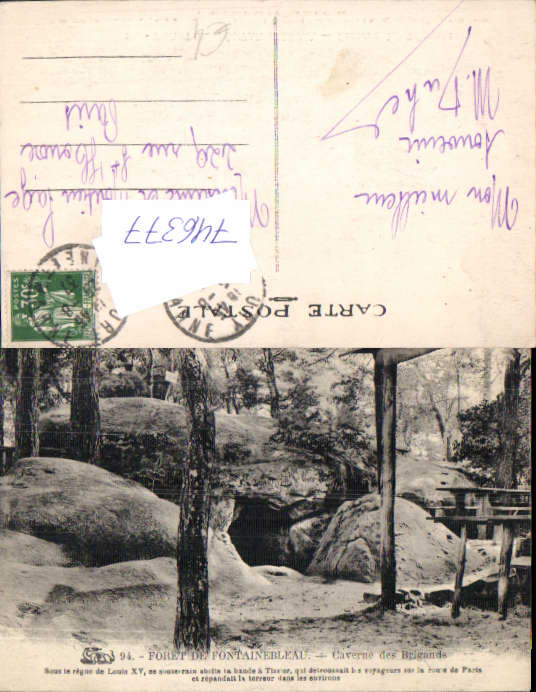 CARTE POSTALE
746377
Mon meilleur
souvenir
229, rue St Honoré
Paris
POSTES
30c
94. - FORÊT DE FONTAINEBLEAU. - Caverne des Brigands
Sous le règne de Louis XV, ce souterrain abrita la bande à Tissier, qui détroussait les voyageurs sur la route de Paris
et répandait la terreur dans les environs